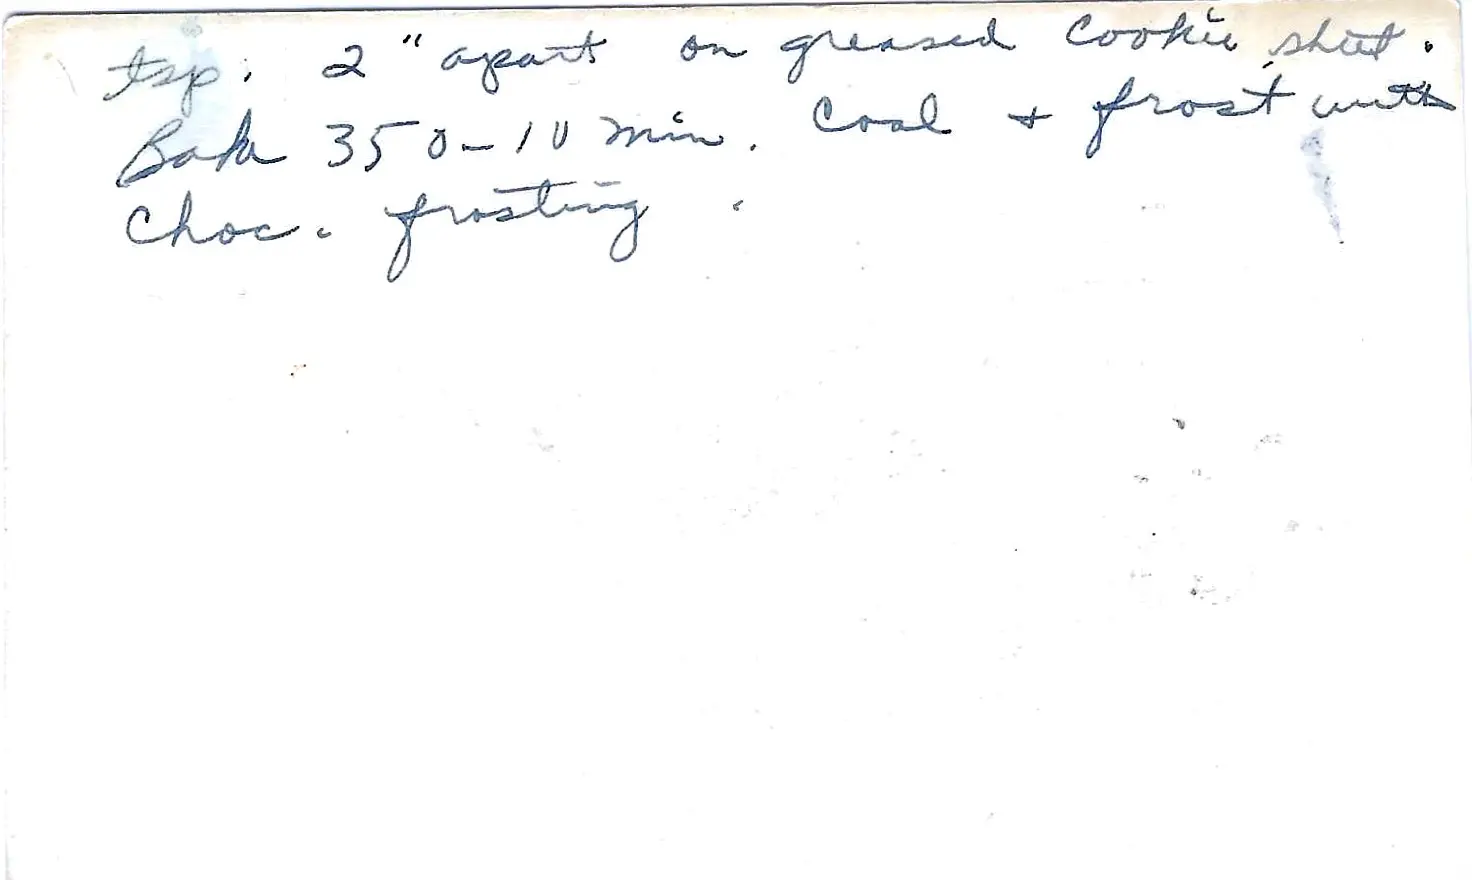 tsp. 2" apart on greased cookie sheet.
Bake 350 - 10 min. Cool + frost with
choc. frosting.